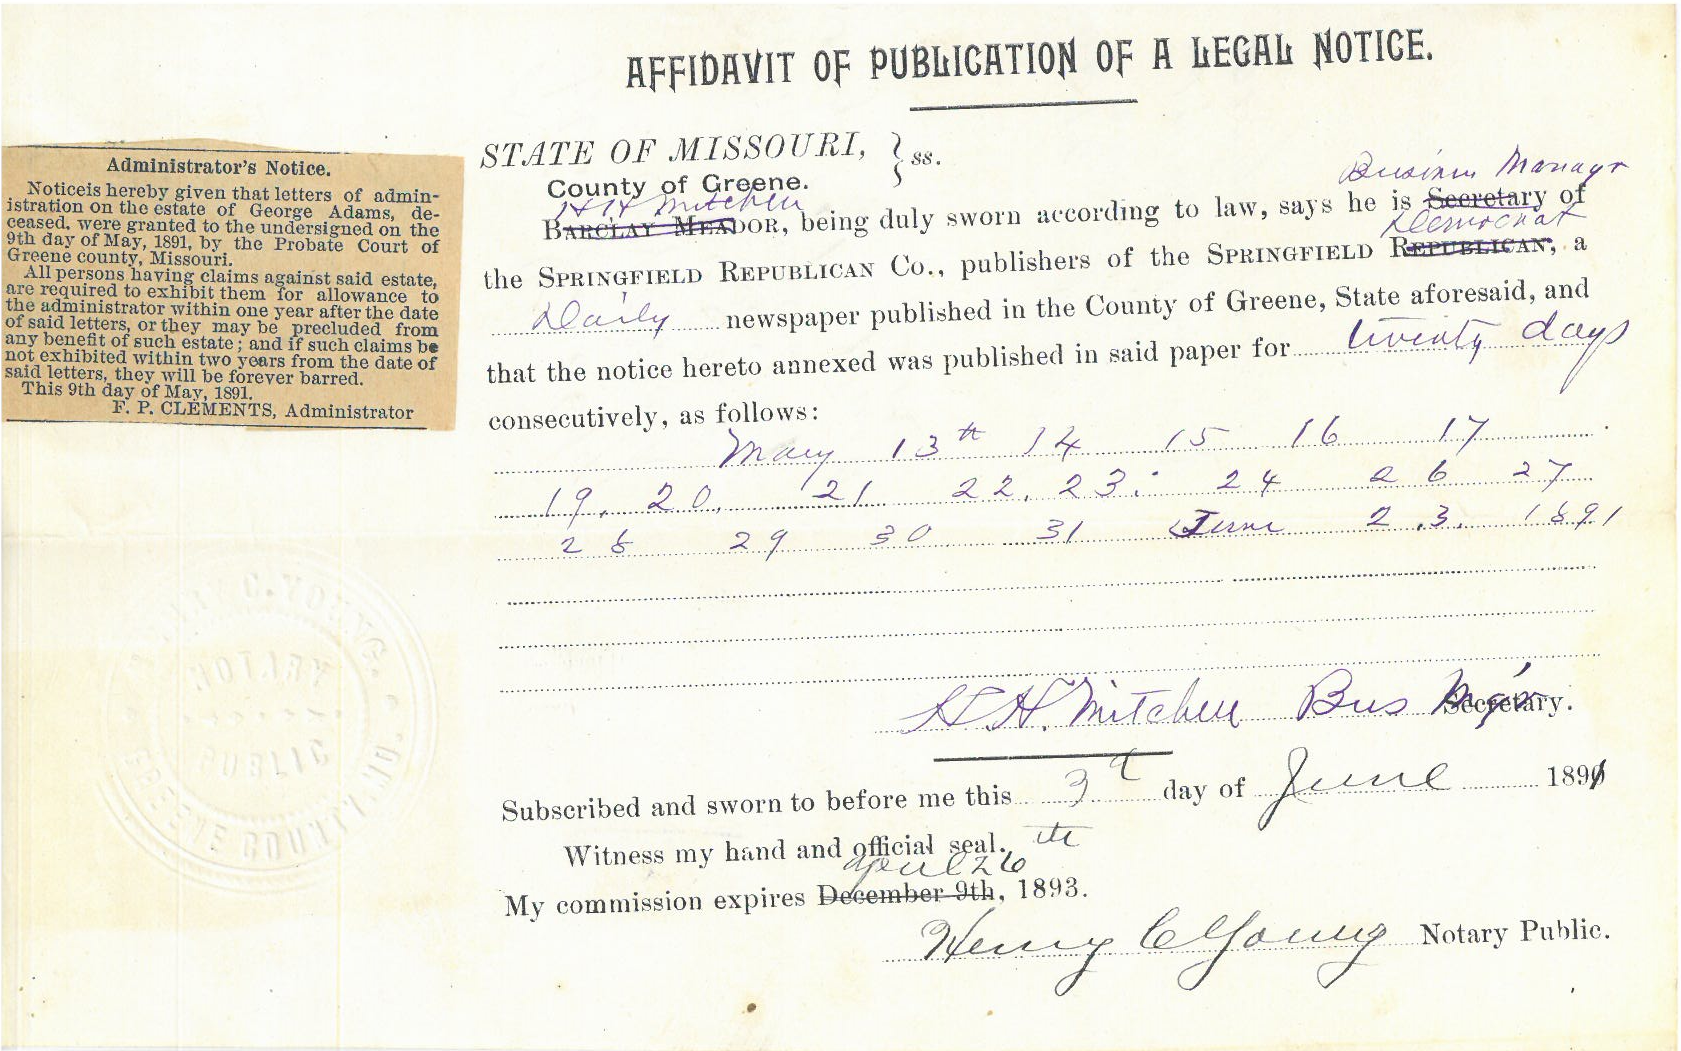 AFFIDAVIT OF PUBLICATION OF A LEGAL NOTICE.
Administrator's Notice.
Noticeis hereby given that letters of admin-
istration on the estate of George Adams, de-
ceased, were granted to the undersigned on the
9th day of May, 1891, by the Probate Court of
Greene county, Missouri.
All persons having claims against said estate,
are required to exhibit them for allowance to
the administrator within one year after the date
of said letters, or they may be precluded from
any benefit of such estate; and if such claims be
not exhibited within two years from the date of
said letters, they will be forever barred.
This 9th day of May, 1891.
F. P. CLEMENTS, Administrator
STATE OF MISSOURI, } ss.
County of Greene.
Business Manager
H H Mitchell
BARCLAY MEADOR, being duly sworn according to law, says he is Secretary of
Democrat
the SPRINGFIELD REPUBLICAN CO., publishers of the SPRINGFIELD REPUBLICAN, a
Daily newspaper published in the County of Greene, State aforesaid, and
that the notice hereto annexed was published in said paper for twenty days
consecutively, as follows:
May 13th 14 15 16 17
19, 20, 21 22, 23, 24 26 27
28 29 30 31 June 2, 3, 1891
H H. Mitchell Bus Mg'r Secretary.
Subscribed and sworn to before me this 3d day of June 1891
Witness my hand and official seal.
April 26th
My commission expires December 9th, 1893.
Henry C Young Notary Public.
HENRY C. YOUNG.
NOTARY
PUBLIC
GREENE COUNTY, MO.